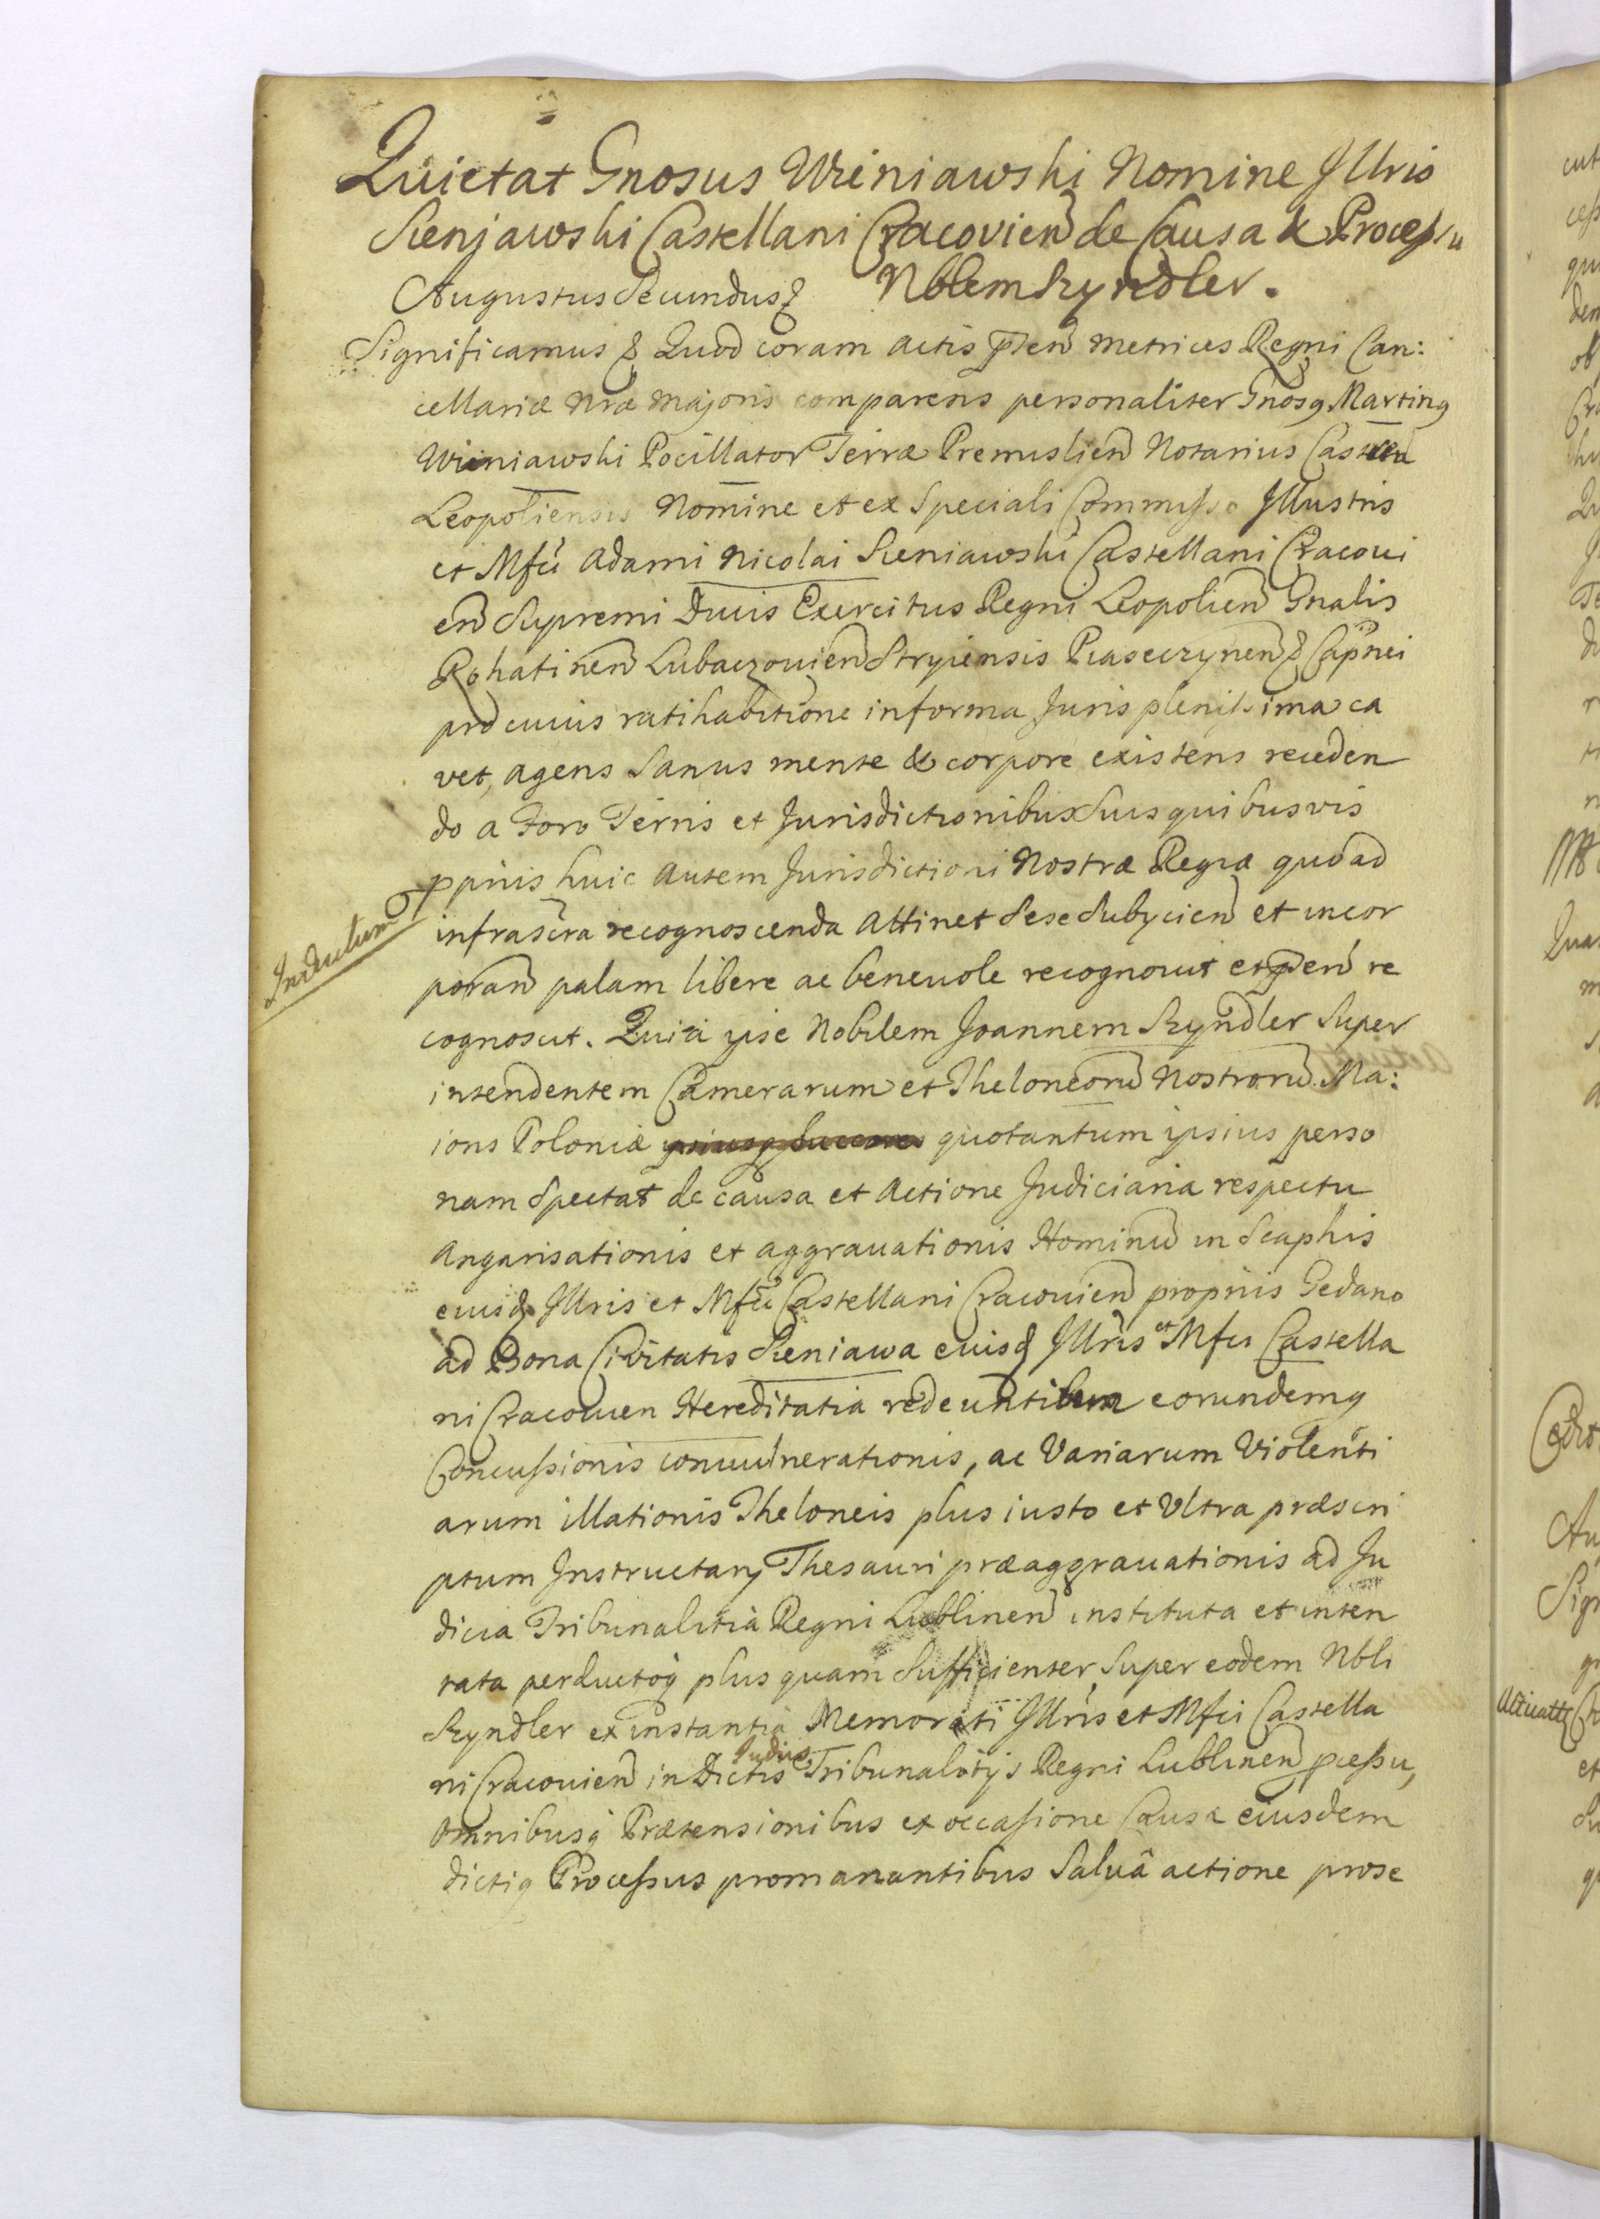 Quietat Gnosus Wieniawski Nomine Jllris
Sieniawski Castellani Cracovien de Causa & Processu
Augustus Secundus & Nblem Szyndler.
Significamus & Quod coram actis pnten metrices Regni Can:
cellariæ nræ majoris comparens personaliter Gnosq Martinq
Wieniawski Pocillator Terræ Premislien Notarius Castren
Leopoliensis Nomine et ex speciali Commisso Jllustris
et Mfci Adami Nicolai Sieniawski Castellani Cracovi
en Supremi Ducis Exercitus Regni Leopolien Gnalis
Rohatinen Lubaczovien Stryiensis Piaseczynen & Capnei
pro cuius ratihabitione informa Juris plenissima ca
vet, agens Sanus mente & corpore existens receden
do a Foro Terris et Jurisdictionibus Suis quibusvis
ppriis huic autem Jurisdictioni Nostræ Regiæ quo ad
infrascra recognoscenda attinet sese Subycien et incor
poran palam libere ac benevole recognovit et pnten re
cognoscit. Quia ipse Nobilem Joannem Szyndler Super
intendentem Camerarum et Theloneoru Nostroru Ma:
ioris Poloniæ quotantum ipsius perso
nam Spectat de causa et Actione Judiciaria respectu
Angarisationis et aggravationis Hominu in Scaphis
eiusd Jllris et Mfci Castellani Cracovien propriis Gedano
ad Bona Civitatis Sieniawa eiusd Jllris et Mfci Castella
ni Cracovien Hereditaria redeuntibus eorundemq
Concussionis convulnerationis, ac Variarum Violenti
arum illationis Theloneis plus iusto et Ultra præscri
ptum Instructary Thesauri præaggravationis ad Ju
dicia Tribunalitia Regni Lublinen instituta et inten
tata perductoq plus quam Sufficienter, super eodem Nbli
Szyndler ex instantia Memorati Jllris et Mfci Castella
ni Cracovien in Dictis Judiis Tribunalitijs Regni Lublinen pcessu,
omnibusq Prætensionibus ex occasione Causæ eiusdem
dictiq Processus promanantibus Salvâ actione prose
Indultum